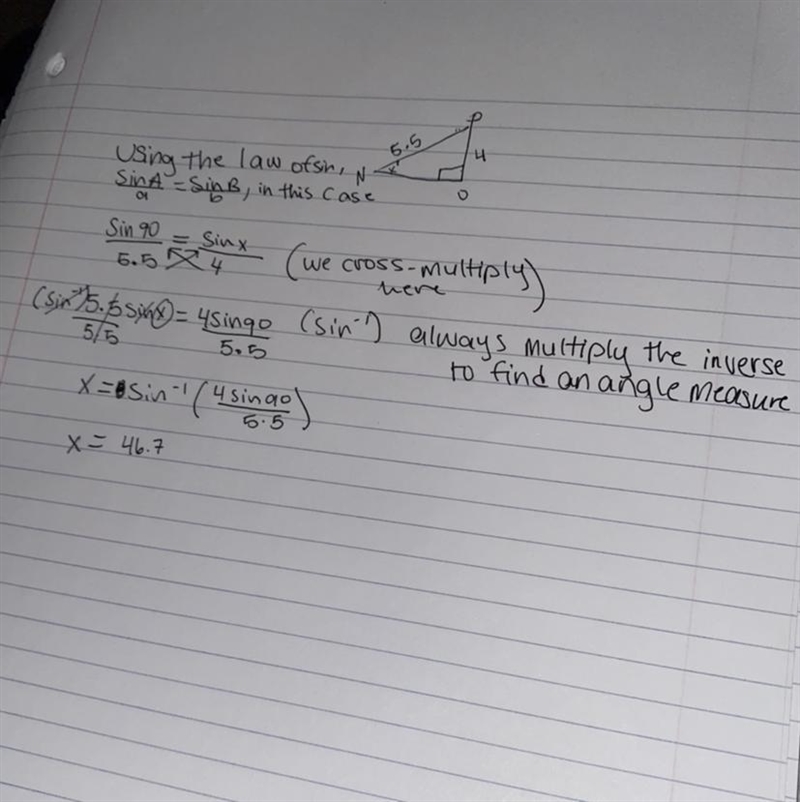 P
5.5
4
Using the law of sin, N x
O
SinA/a = SinB/b, in this case
Sin 90/5.5 = Sin x/4 (we cross-multiply
here)
(sin⁻¹) 5.5 sin(x)/5.5 = 4sin90/5.5 (sin⁻¹) always multiply the inverse
to find an angle measure
x = sin⁻¹ (4 sin90/5.5)
x = 46.7